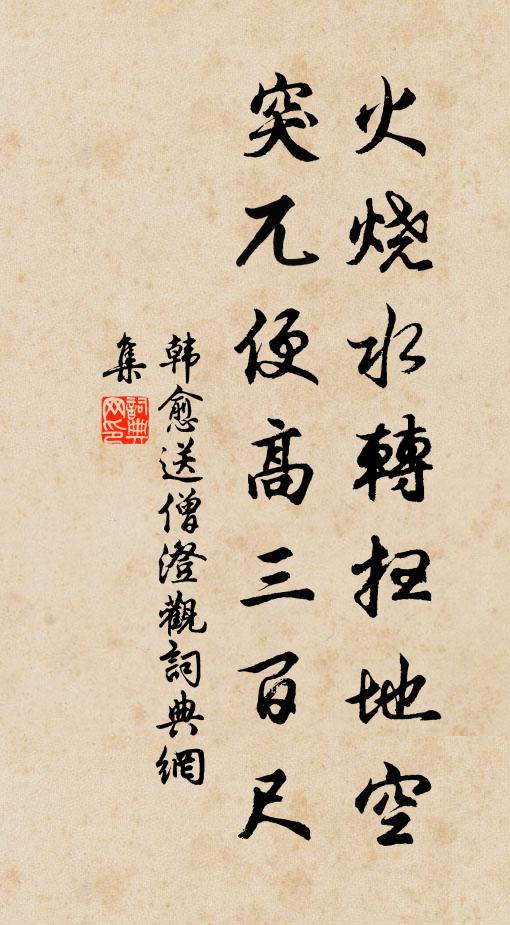 火燒水轉扫地空
突兀便高三百尺
韩愈送僧澄觀詞典網
集
詞典
网印